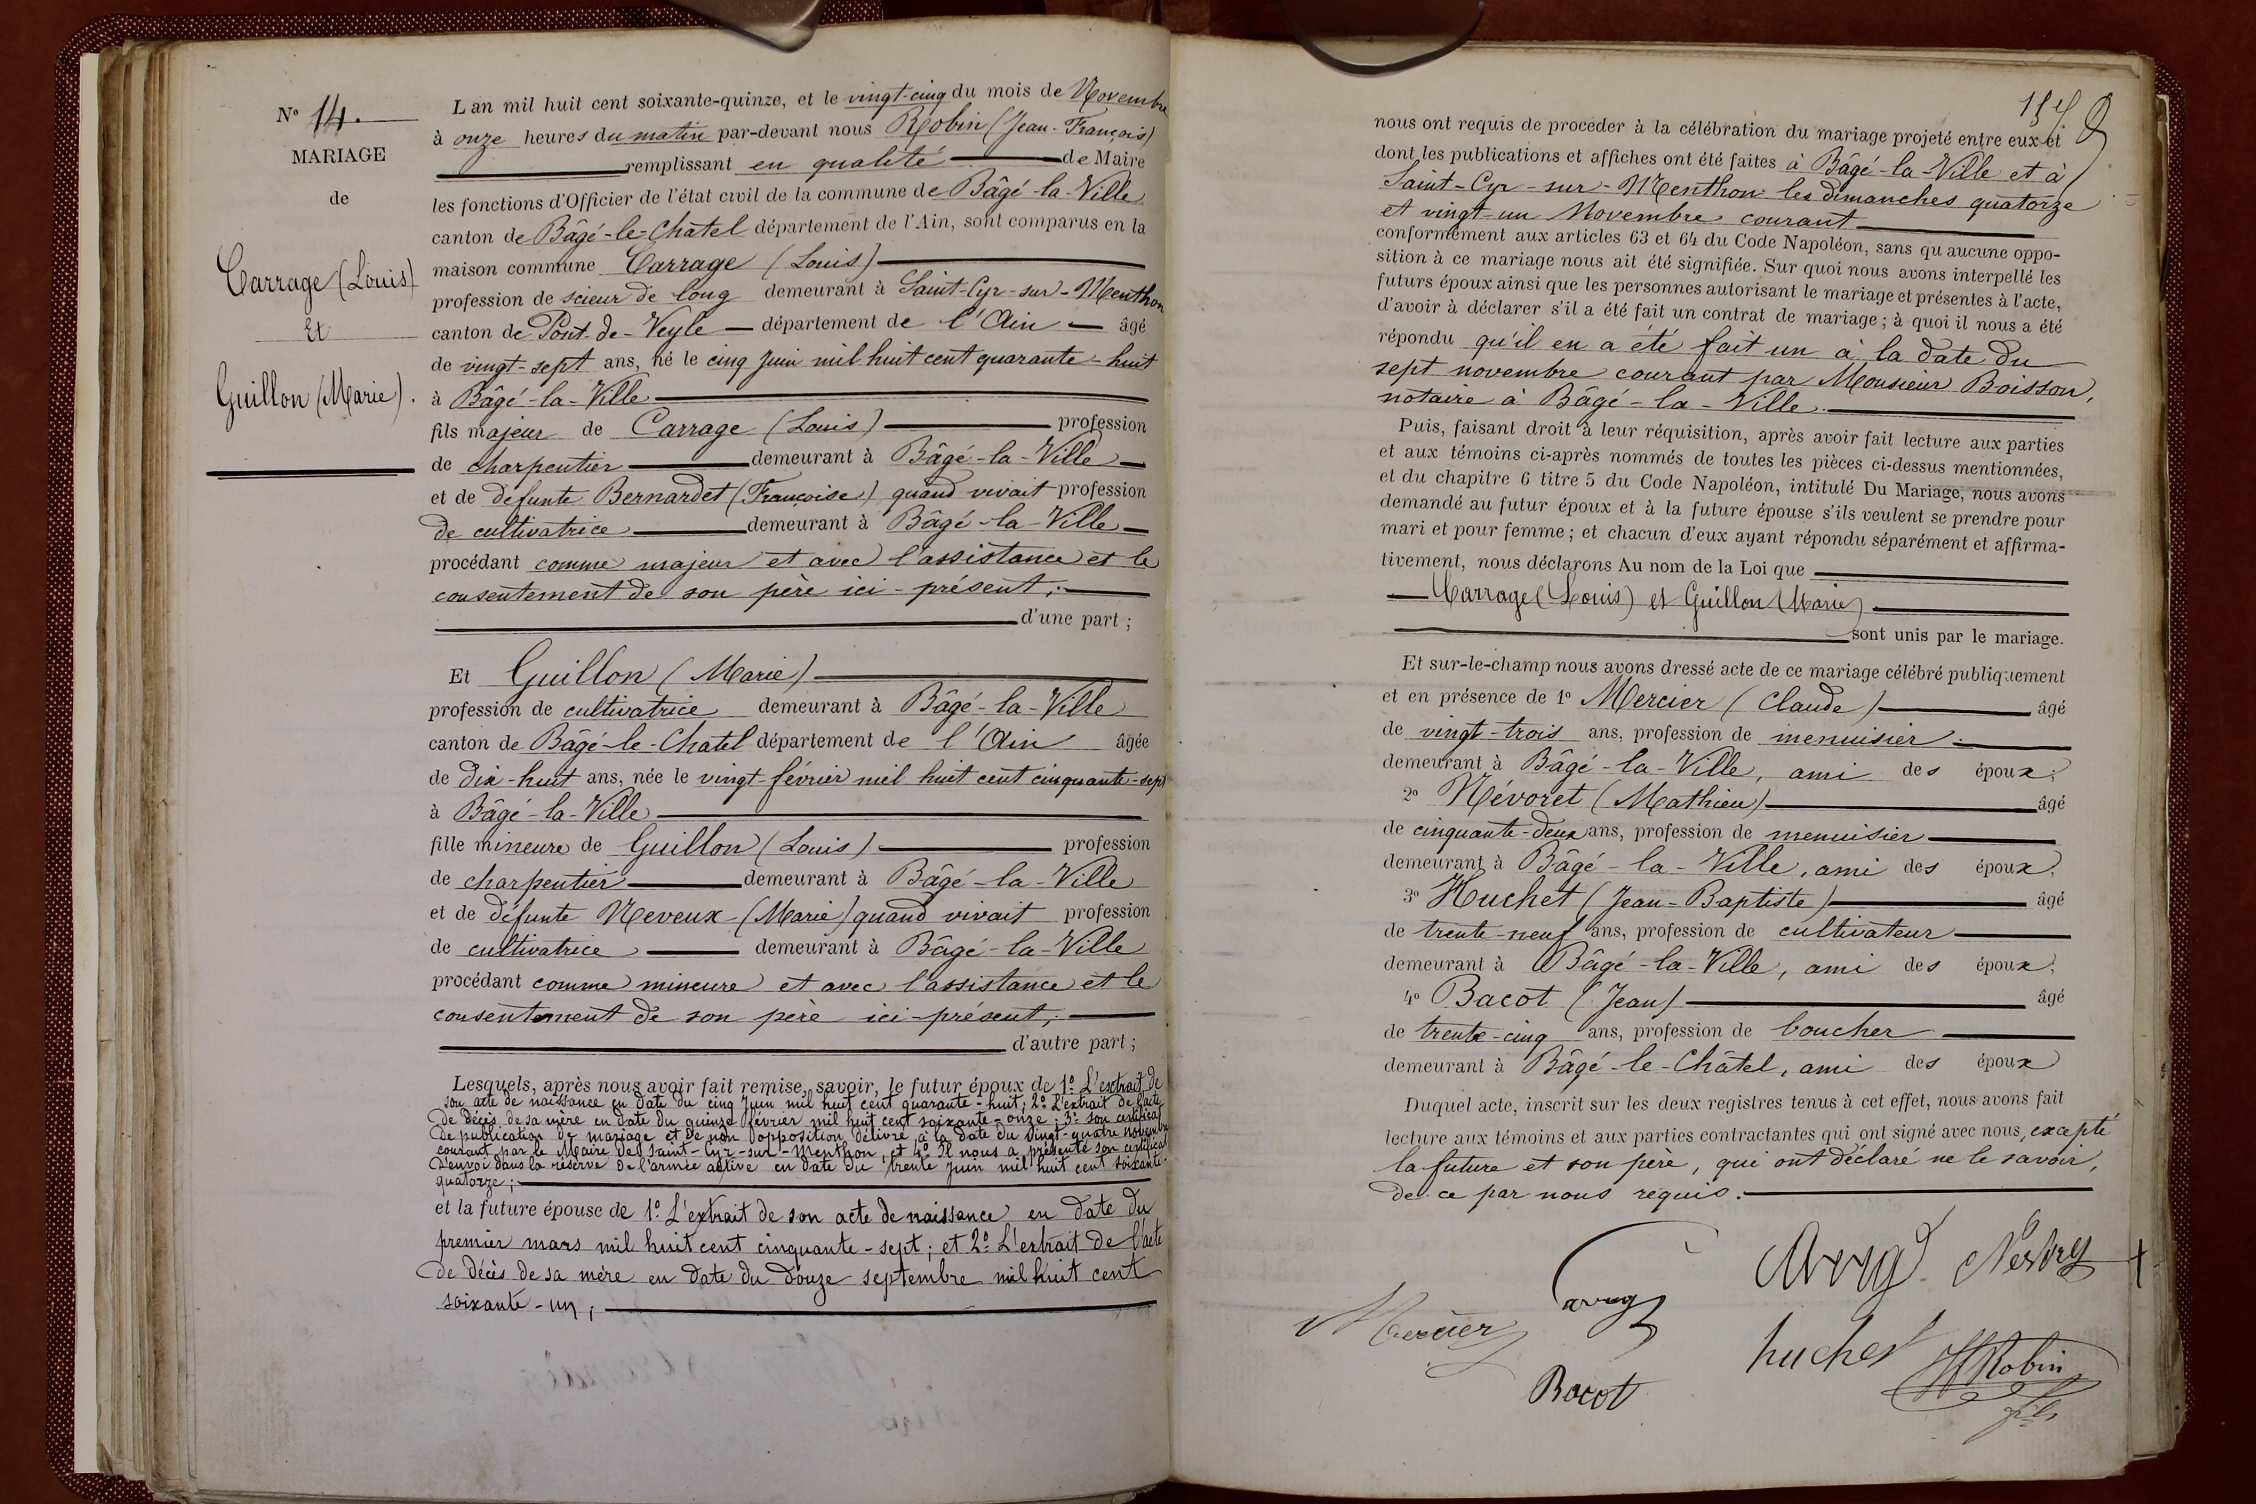 N° 14.
MARIAGE
de
Carrage (Louis)
Et
Guillon (Marie).
L'an mil huit cent soixante-quinze, et le vingt-cinq du mois de Novembre
à onze heures du matin par-devant nous Robin (Jean-François)
remplissant en qualité de Maire
les fonctions d'Officier de l'état civil de la commune de Bâgé-la-Ville
canton de Bâgé-le-Châtel département de l'Ain, sont comparus en la
maison commune Carrage (Louis)
profession de scieur de long demeurant à Saint-Cyr-sur-Menthon
canton de Pont-de-Veyle département de l'Ain âgé
de vingt-sept ans, né le cinq Juin mil huit cent quarante-huit
à Bâgé-la-Ville
fils majeur de Carrage (Louis) profession
de charpentier demeurant à Bâgé-la-Ville
et de défunte Bernardet (Françoise) quand vivait profession
de cultivatrice demeurant à Bâgé-la-Ville
procédant comme majeur et avec l'assistance et le
consentement de son père ici-présent;
d'une part;
Et Guillon (Marie)
profession de cultivatrice demeurant à Bâgé-la-Ville
canton de Bâgé-le-Chatel département de l'Ain âgée
de dix-huit ans, née le vingt-février mil huit cent cinquante-sept
à Bâgé-la-Ville
fille mineure de Guillon (Louis) profession
de charpentier demeurant à Bâgé-la-Ville
et de défunte Neveux (Marie) quand vivait profession
de cultivatrice demeurant à Bâgé-la-Ville
procédant comme mineure et avec l'assistance et le
consentement de son père ici-présent;
d'autre part;
Lesquels, après nous avoir fait remise, savoir, le futur époux de 1° L'extrait de
son acte de naissance en date du cinq Juin mil huit cent quarante-huit; 2° L'extrait de l'acte
de décès de sa mère en date du quinze février mil huit cent soixante-onze; 3° son certificat
de publication de mariage et de non opposition délivré à la date du vingt-quatre novembre
courant par le Maire de Saint-Cyr-sur-Menthon, et 4° Il nous a présenté son certificat
d'envoi dans la réserve de l'armée active en date du trente Juin mil huit cent soixante-
quatorze;
et la future épouse de 1° L'extrait de son acte de naissance en date du
premier mars mil huit cent cinquante-sept; et 2° L'extrait de l'acte
de décès de sa mère en date du douze septembre mil huit cent
soixante-un;
nous ont requis de procéder à la célébration du mariage projeté entre eux et
dont les publications et affiches ont été faites à Bâgé-la-Ville et à
Saint-Cyr-sur-Menthon les dimanches quatorze
et vingt-un Novembre courant
conformément aux articles 63 et 64 du Code Napoléon, sans qu'aucune oppo-
sition à ce mariage nous ait été signifiée. Sur quoi nous avons interpellé les
futurs époux ainsi que les personnes autorisant le mariage et présentes à l'acte,
d'avoir à déclarer s'il a été fait un contrat de mariage; à quoi il nous a été
répondu qu'il en a été fait un à la date du
sept novembre courant par Monsieur Boisson,
notaire à Bâgé-la-Ville.
Puis, faisant droit à leur réquisition, après avoir fait lecture aux parties
et aux témoins ci-après nommés de toutes les pièces ci-dessus mentionnées,
et du chapitre 6 titre 5 du Code Napoléon, intitulé Du Mariage, nous avons
demandé au futur époux et à la future épouse s'ils veulent se prendre pour
mari et pour femme; et chacun d'eux ayant répondu séparément et affirma-
tivement, nous déclarons Au nom de la Loi que
Carrage (Louis) et Guillon (Marie)
sont unis par le mariage.
Et sur-le-champ nous avons dressé acte de ce mariage célébré publiquement
et en présence de 1° Mercier (Claude) âgé
de vingt-trois ans, profession de menuisier
demeurant à Bâgé-la-Ville, ami des époux;
2° Névoret (Mathieu) âgé
de cinquante-deux ans, profession de menuisier
demeurant à Bâgé-la-Ville, ami des époux;
3° Huchet (Jean-Baptiste) âgé
de trente-neuf ans, profession de cultivateur
demeurant à Bâgé-la-Ville, ami des époux;
4° Bacot (Jean) âgé
de trente-cinq ans, profession de boucher
demeurant à Bâgé-le-Châtel, ami des époux
Duquel acte, inscrit sur les deux registres tenus à cet effet, nous avons fait
lecture aux témoins et aux parties contractantes qui ont signé avec nous, excepté
la future et son père, qui ont déclaré ne le savoir,
de ce par nous requis.
Mercier
Bacot
huchet
Robin
fils